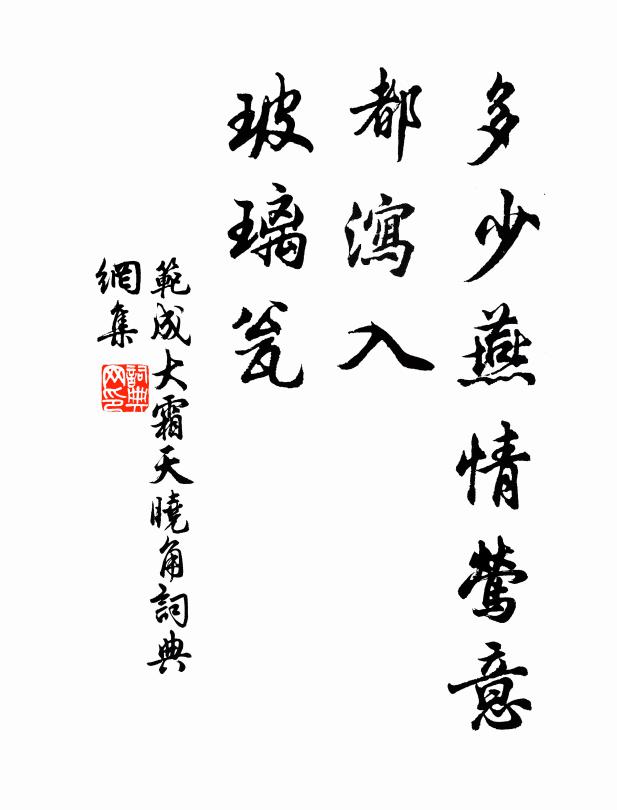 多少燕情鶯意
都瀉入
玻璃瓮
範成大霜天曉角詞典
網集
詞典
网印